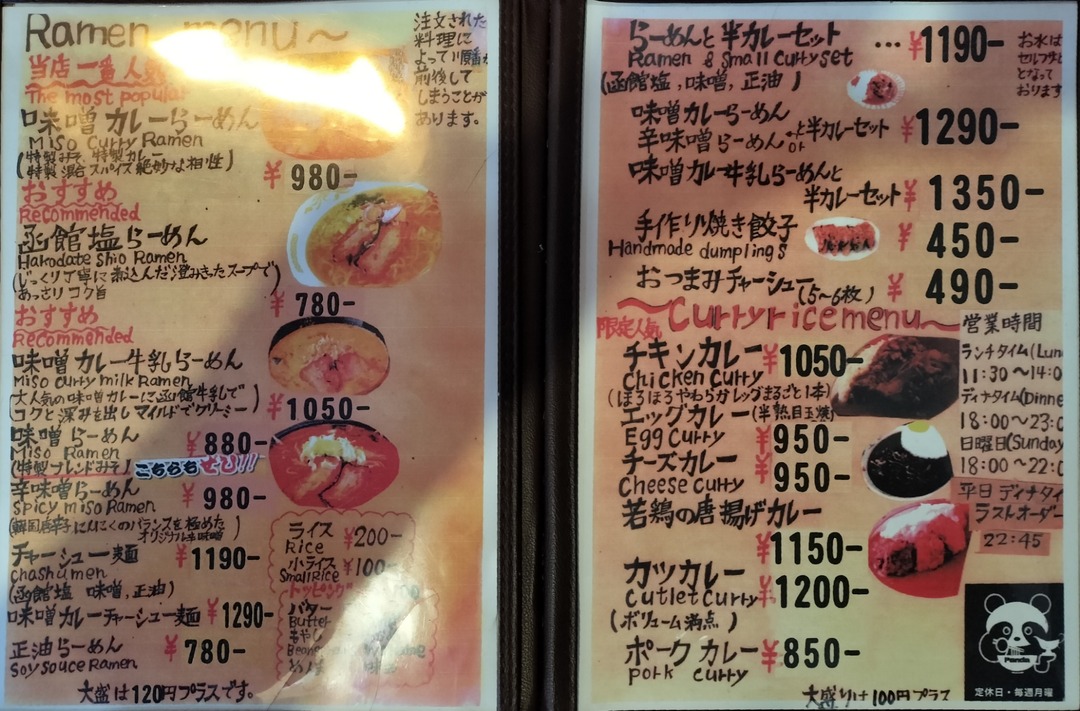 Ramen menu～
注文された
料理に
よって順番が
前後して
しまうことが
あります。
当店一番人気
The most popular
味噌カレーらーめん
Miso curry Ramen
(特製みそ、特製カレー
特製混合スパイス絶妙な相性)
¥980-
おすすめ
Recommended
函館塩らーめん
Hakodate Shio Ramen
(じっくり丁寧に煮込んだ澄みきったスープで)
あっさりコク旨
¥780-
おすすめ
Recommended
味噌カレー牛乳らーめん
Miso curry milk Ramen
大人気の味噌カレーに函館牛乳で
コクと深みを出しマイルドでクリーミー
¥1050-
味噌らーめん ¥880-
Miso Ramen
(特製ブレンドみそ) こちらもぜひ!!!
辛味噌らーめん ¥980-
Spicy miso Ramen
にんにくのバランスを極めた
オリジナル辛味噌
チャーシュー麺 ¥1190-
chashumen
(函館塩 味噌、正油)
味噌カレーチャーシュー麺 ¥1290-
正油らーめん ¥780-
Soy sauce Ramen
大盛は120円プラスです。
ライス ¥200-
Rice
小ライス ¥100-
Small Rice
トッピング
バター
Butter
もやし
らーめんと半カレーセット …¥1190-
Ramen & small curry set
(函館塩、味噌、正油)
お水は
セルフ
となって
おります
味噌カレーらーめん
辛味噌らーめん と or 半カレーセット ¥1290-
味噌カレー牛乳らーめんと
半カレーセット ¥1350-
手作り焼き餃子 ¥450-
Handmade dumplings
おつまみチャーシュー(5~6枚) ¥490-
～Curry rice menu～
限定人気
チキンカレー ¥1050-
Chicken curry
(ほろほろやわらかレッグまるごと1本)
エッグカレー(半熟目玉焼) ¥950-
Egg curry
チーズカレー ¥950-
Cheese curry
若鶏の唐揚げカレー
¥1150-
カツカレー ¥1200-
Cutlet curry
(ボリューム満点)
ポークカレー ¥850-
pork curry
大盛りは100円プラス
営業時間
ランチタイム(Lun
11:30～14:0
ディナタイム(Dinne
18:00～23:0
日曜日(Sunday
18:00～22:0
平日 ディナタイ
ラストオーダー
22:45
Panda
定休日・毎週月曜